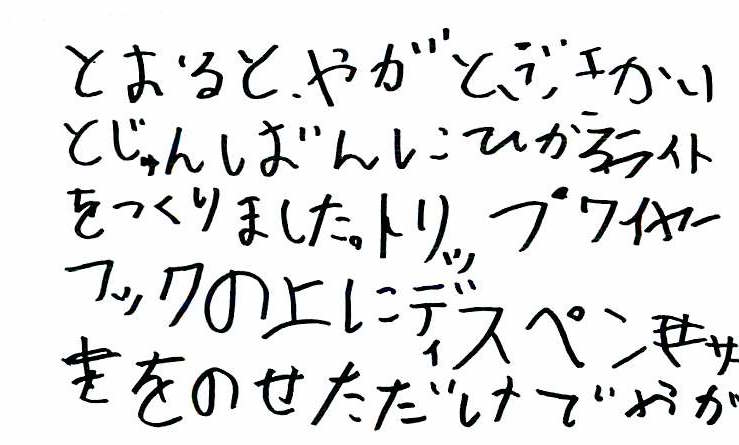 とおると、やがと、かい
とじゅんばんにひかるライト
をつくりました。トリップワイヤー
フックの上にディスペンサ
をのせただけでやが